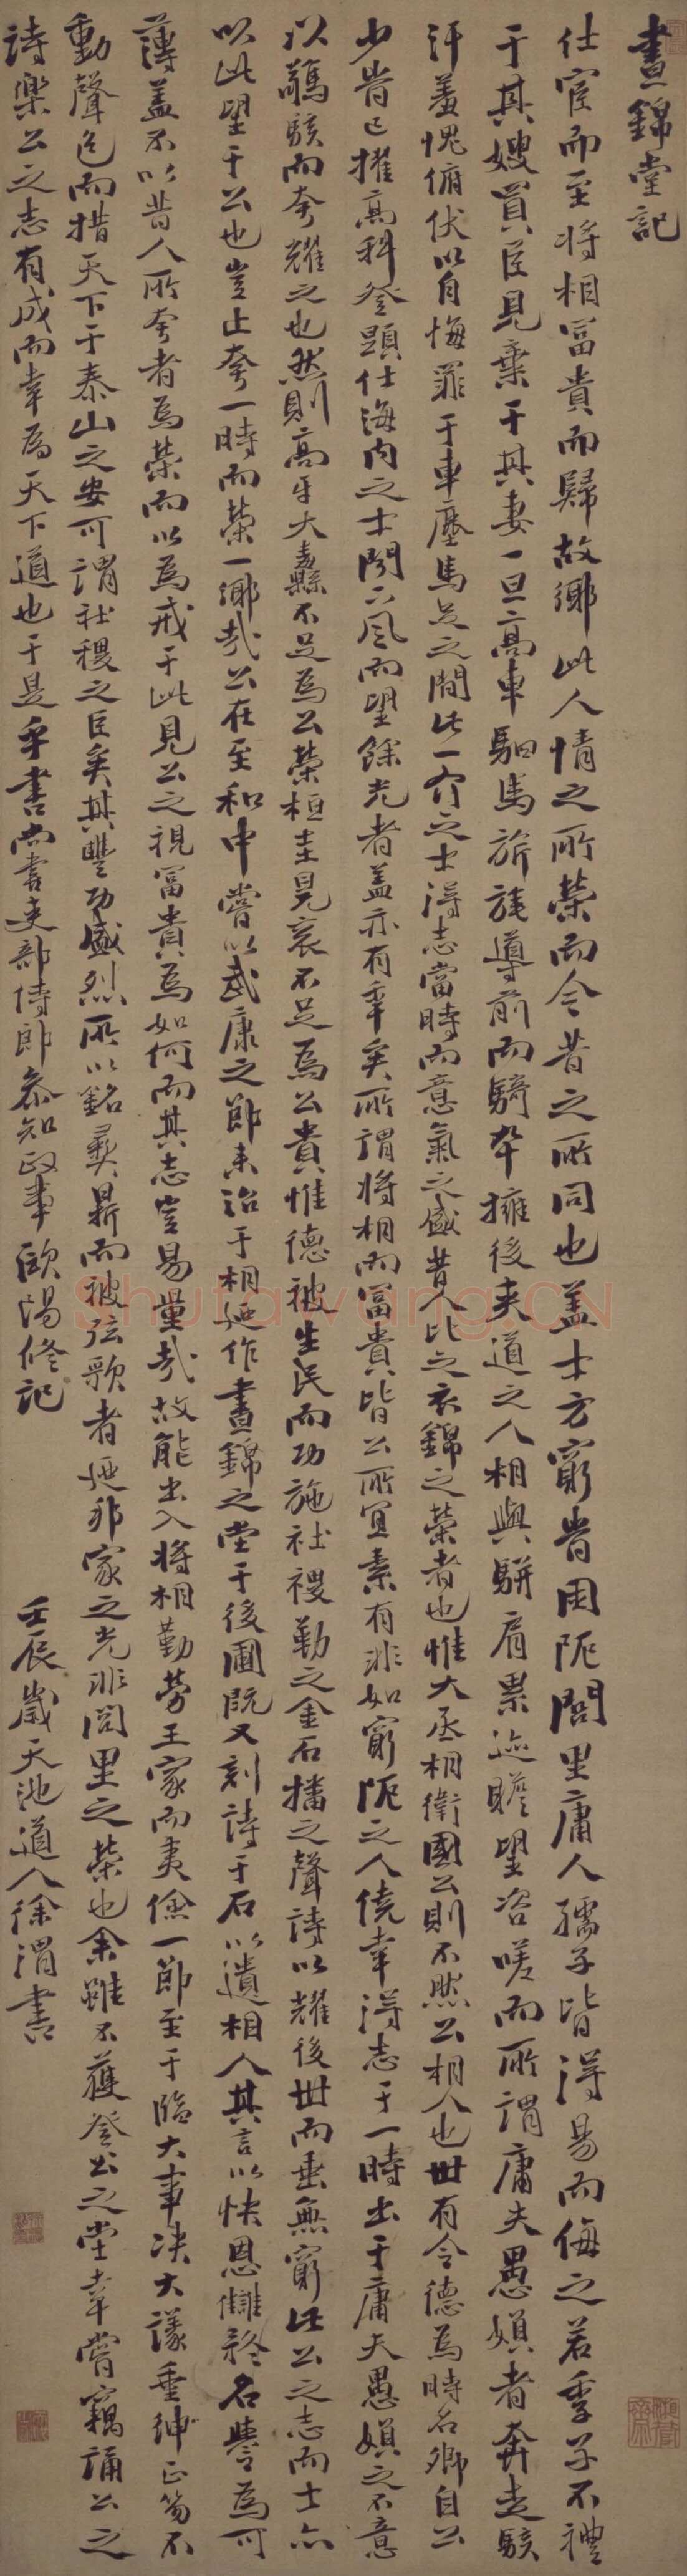 晝錦堂記
仕宦而至將相富貴而歸故鄉此人情之所榮而今昔之所同也蓋士方窮時困阨閭里庸人孺子皆得易而侮之若季子不禮
于其嫂買臣見棄于其妻一旦高車駟馬旂旄導前而騎卒擁後夾道之人相與駢肩累迹瞻望咨嗟而所謂庸夫愚婦者奔走駭
汗羞愧俯伏以自悔罪于車塵馬足之間此一介之士得志當時而意氣之盛昔人比之衣錦之榮者也惟大丞相衛國公則不然公相人也世有令德為時名卿自公
少時已擢高科登顯仕海內之士聞下風而望餘光者蓋亦有年矣所謂將相而富貴皆公所宜素有非如窮阨之人僥幸得志于一時出于庸夫愚婦之不意
以驚駭而夸耀之也然則高牙大纛不足為公榮桓圭冕袞不足為公貴惟德被生民而功施社稷勒之金石播之聲詩以耀後世而垂無窮此公之志而士亦
以此望于公也豈止夸一時而榮一鄉哉公在至和中嘗以武康之節來治于相迺作晝錦之堂于後圃既又刻詩于石以遺相人其言以快恩讎矜名譽為可
薄蓋不以昔人所夸者為榮而以為戒于此見公之視富貴為如何而其志豈易量哉故能出入將相勤勞王家而夷險一節至于臨大事決大議垂紳正笏不
動聲色而措天下于泰山之安可謂社稷之臣矣其豐功盛烈所以銘彝鼎而被弦歌者迺邦家之光非閭里之榮也余雖不獲登公之堂幸嘗竊誦公之
詩樂公之志有成而幸為天下道也于是乎書尚書吏部侍郎參知政事歐陽修記 壬辰歲天池道人徐渭書
Shufawang.CN